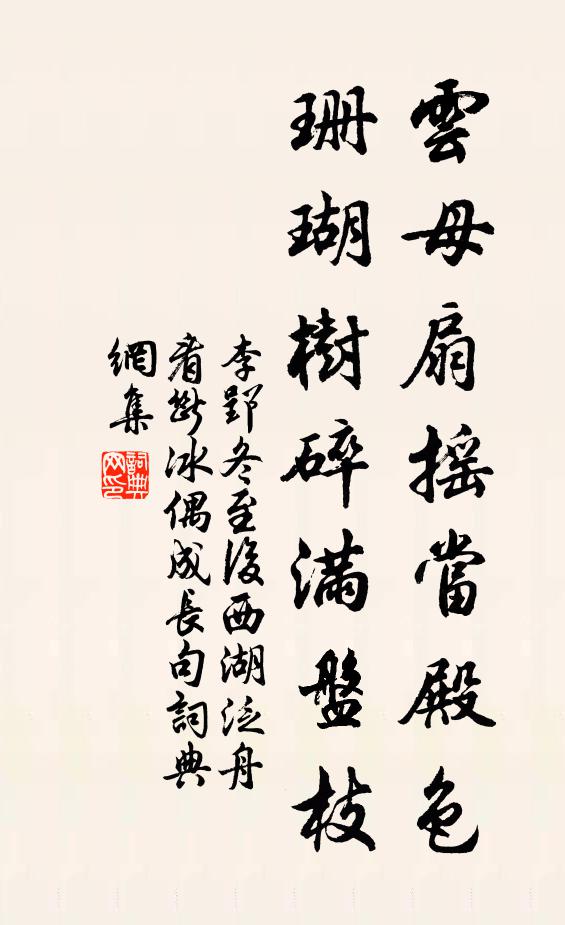 雲母扇搖當殿色
珊瑚樹碎滿盤枝
李郢冬至後西湖泛舟
看斷冰偶成長句詞典
網集
詞典
网印